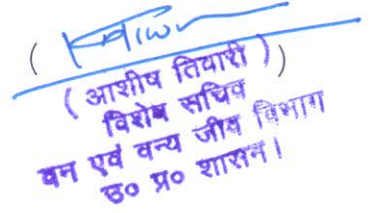 ( आशीष तिवारी )
विशेष सचिव
वन एवं वन्य जीव विभाग
उ० प्र० शासन।